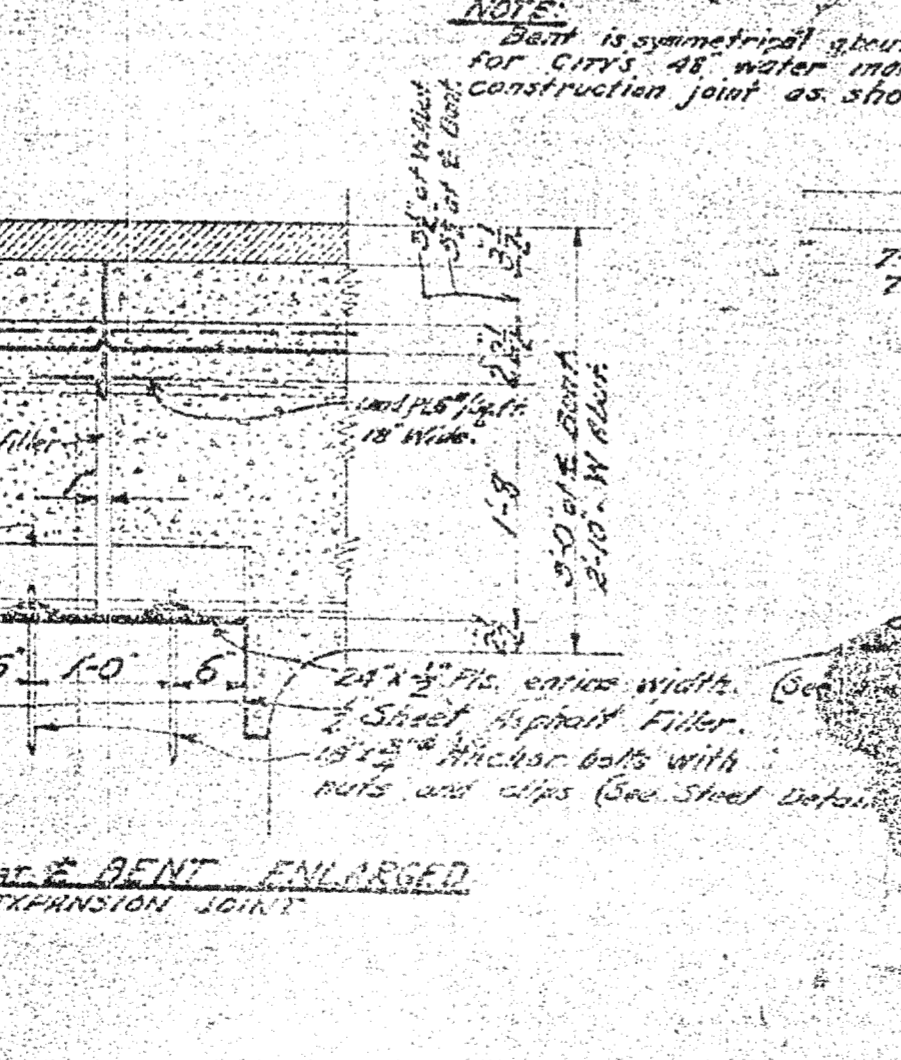 NOTE:
Bent is symmetrical about
for City's 48" water
construction joint as
3½" at W. Abut.
at ℄ Bent
3½
2½
Lead Pl. 6#/sq. ft.
18" Wide.
filler
1'-8"
3'-0" at ℄ Bent.
2'-10" W. Abut.
2½
1'-0"
6"
24" x ½" Pls. entire width. (See
½" Sheet Asphalt Filler.
18" x ¾"ø Anchor bolts with
nuts and clips (See Steel
at ℄ BENT ENLARGED
EXPANSION JOINT